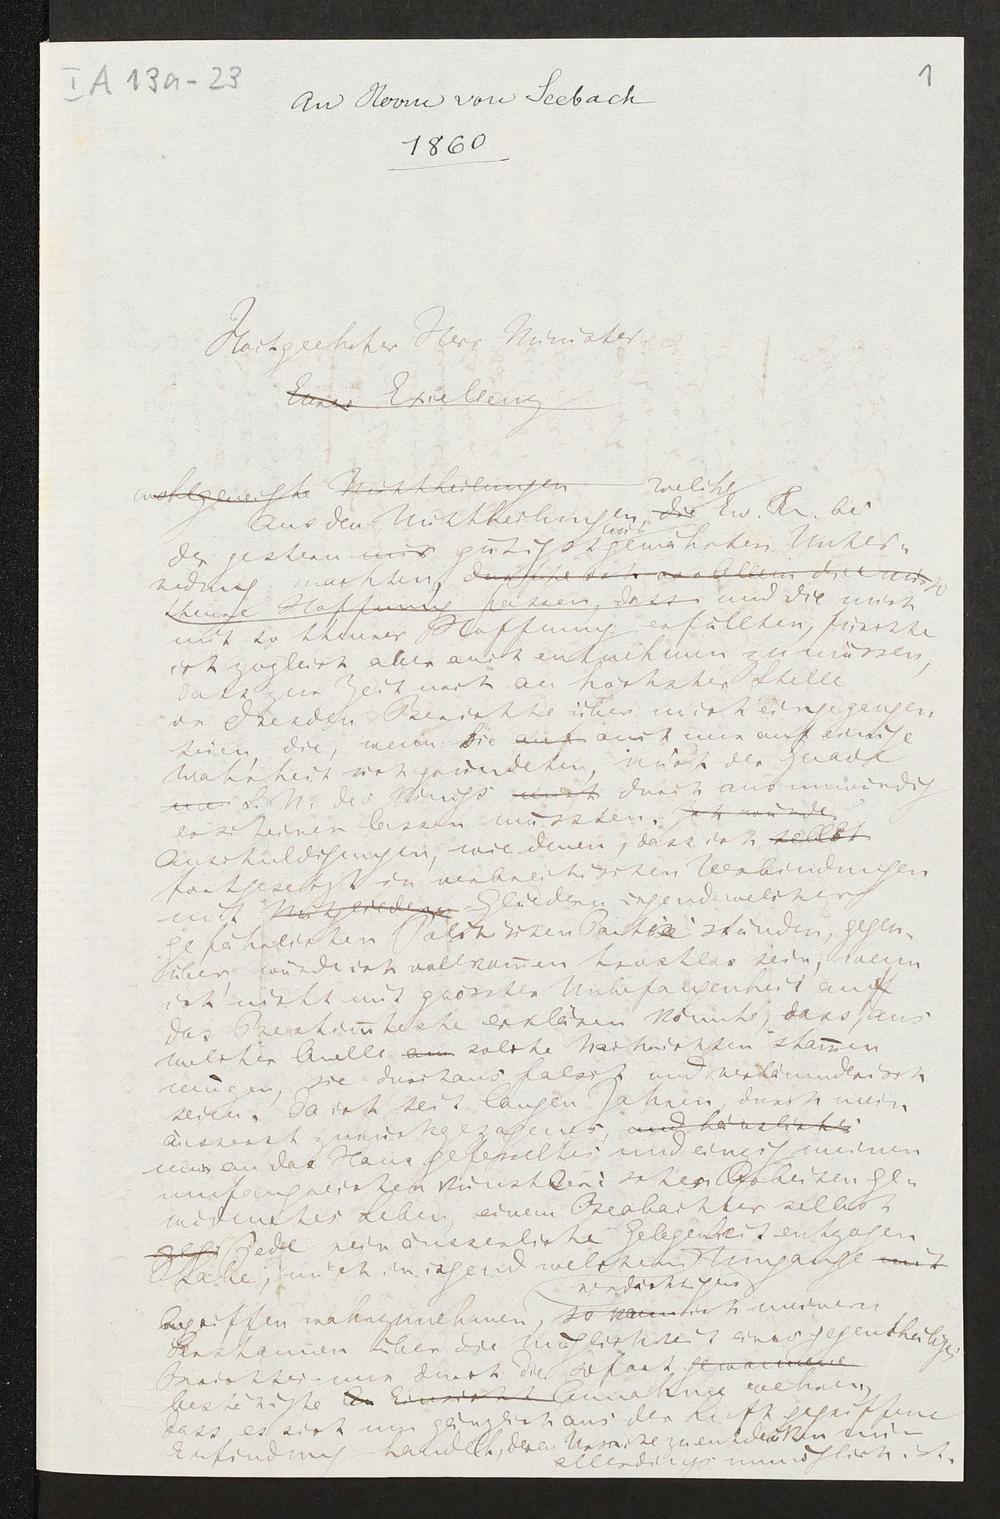 I A 13a-23
1
An Herrn von Seebach
1860
Hochgeehrter Herr Minister.
Eurer Excellenz
wohlgeneigte Mittheilungen welche
Aus den Mittheilungen, die Ew. Ex. bei
der gestern mir gütigst mir gewährten Unter-
redung machten, durfte ich vor Allem die mir so
theure Hoffnung fassen, dass und die mich
mit so theurer Hoffnung erfüllten, glaubte
ich zugleich aber auch entnehmen zu müssen,
dass zur Zeit noch an höchster Stelle
in Dresden Berichte über mich eingegangen
seien, die, wenn sie auf auch nur auf einige
Wahrheit sich gründeten, mich der Gnade
S. M. des Königs durchaus unwürdig
erscheinen lassen müssten. Ich würde
Anschuldigungen, wie denen, dass ich selbst
fortgesetzt in verbrecherischen Verbindungen
mit Mitgliedern Gliedern irgend welcher
gefährlichen Politischen Partei stünden, gegen-
über, würde ich vollkommen trostlos sein, wenn
ich nicht mit grösster Unbefangenheit auf
das Bestimmteste erklären könnte, dass, aus
welcher Quelle solche Nachrichten stammen
mögen, sie durchaus falsch und verläumderisch
seien. Da ich seit langen Jahren, durch mein
äusserst zurückgezogenes, und häusliches
nur an das Haus gefesseltes und einzig meinen
umfangreichen künstlerischen Arbeiten ge-
widmetes Leben, einem Beobachter selbst
jede rein äusserliche Gelegenheit entzogen
habe, mich in irgend welchem Umgange mit
verdächtigen
begriffen wahrzunehmen, so kann ich meinem
Erstaunen über die Möglichkeit eines gegentheiligen
Berichtes nur durch die sofort gewonnene
bestätigte Annahme wehren,
dass es sich um gänzlich aus der Luft gegriffene
Erfindung handelt, deren Ursache zu entdecken mir
allerdings unmöglich ist.